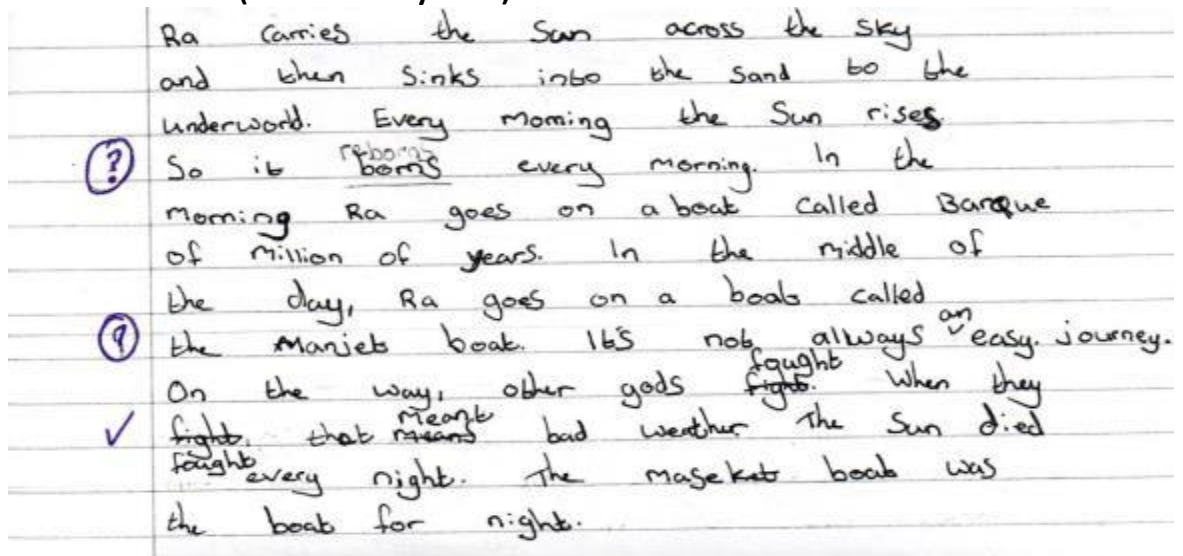 Ra carries the Sun across the sky
and then sinks into the sand to the
underworld. Every morning the Sun rises.
? So it reborns borns every morning. In the
morning Ra goes on a boat called Barque
of million of years. In the middle of
the day, Ra goes on a boat called
? the Manjet boat. It's not allways an easy. journey.
On the way, other gods fight. fought When they
✓ fight, fought that means meant bad weather The Sun died
every night. The maseket boat was
the boat for night.